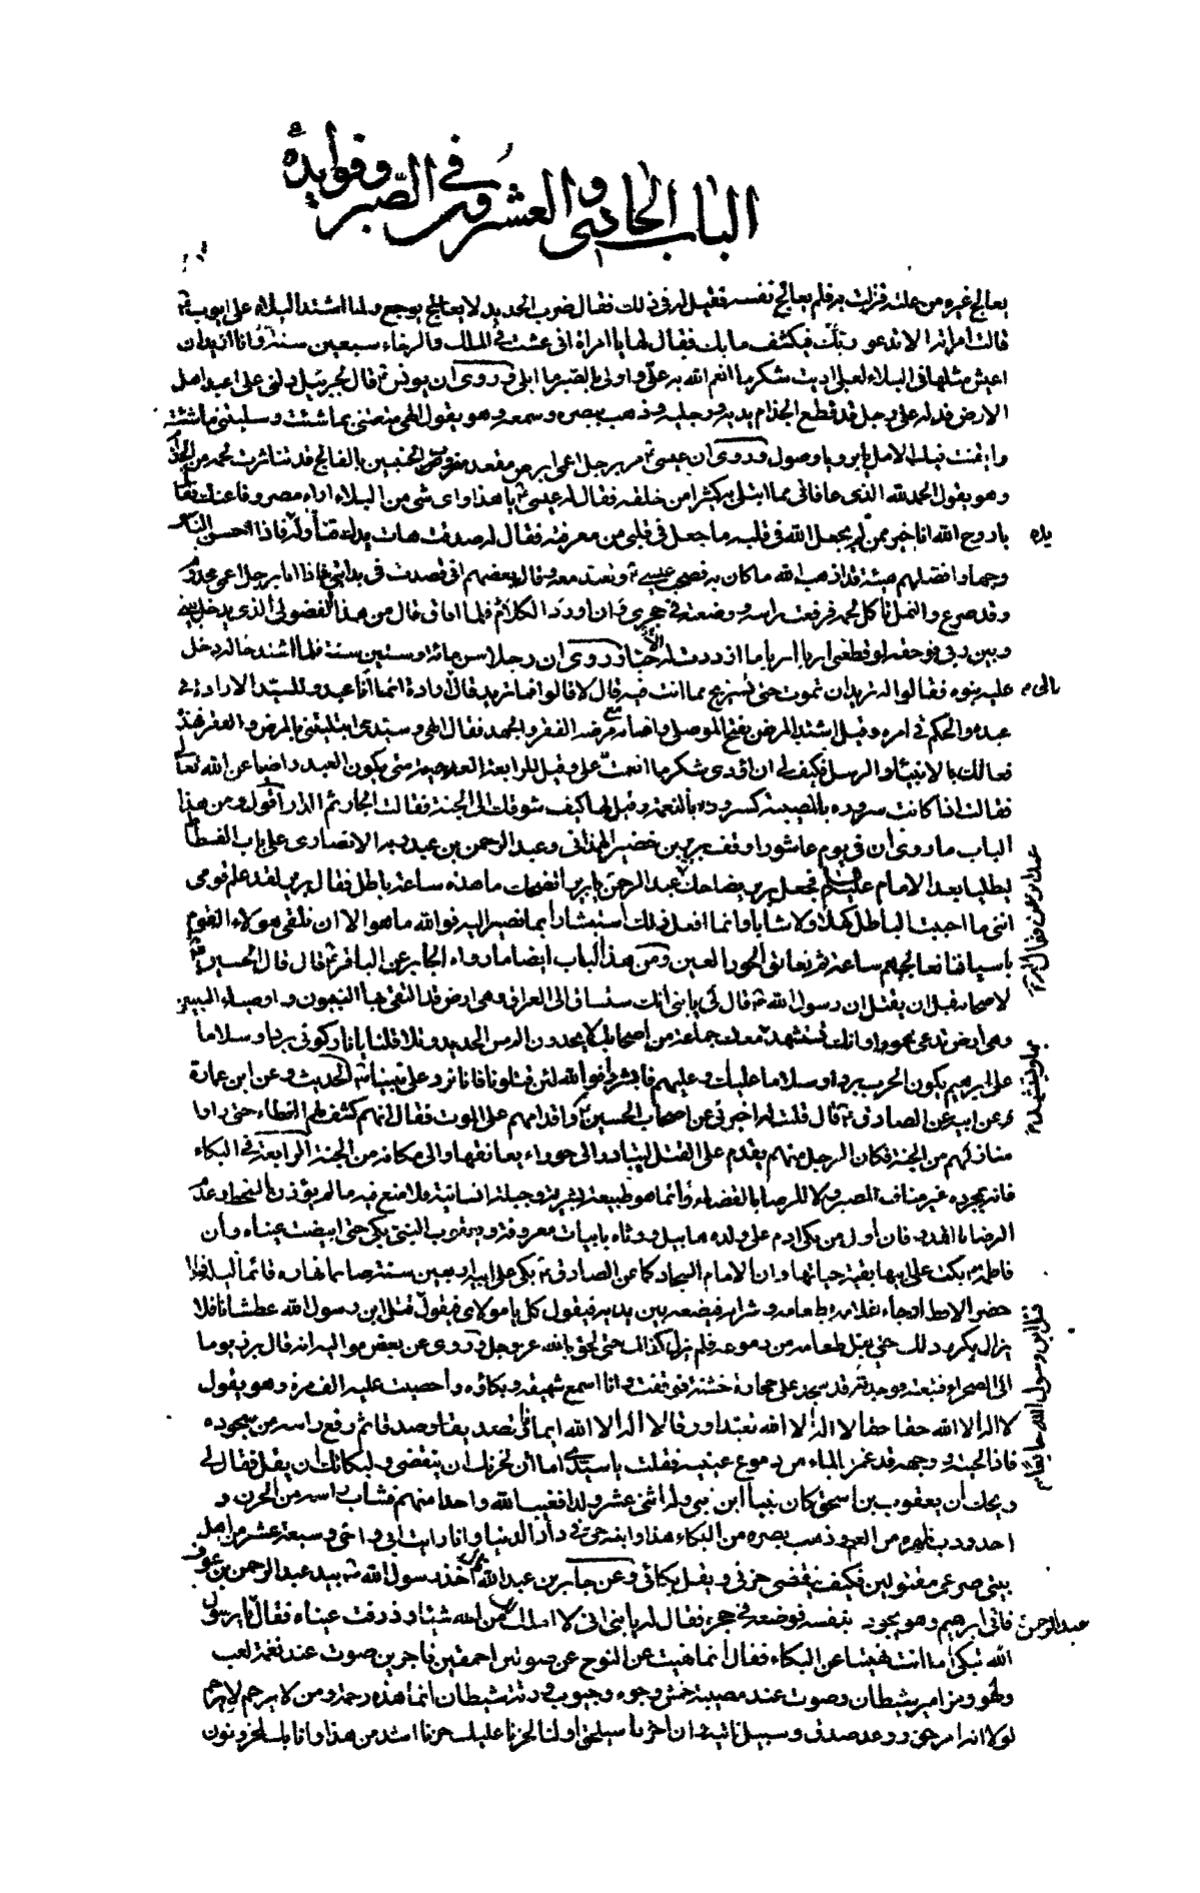 الباب الحادي والعشرون في الصبر وفوايده
يعالج غيره من علة فنزلت به فلم يعالج نفسه فقيل له في ذلك فقال ضرب الحديد لا يعالج بوجع ولما اشتد البلاء على ايوب
قالت امراته الا تدعو ربك فيكشف ما بك فقال لها يا امراة اني عشت في الملك والرخاء سبعين سنة وانا اريد ان
اعيش مثلها في البلاء لعلي اديت شكر ما انعم الله به علي واولى بالصبر ما ابلى وروى ان يونس قال لجبرئيل دلني على اعبد اهل
الارض فدله على رجل قد قطع الجذام يديه ورجليه وذهب ببصره وسمعه وهو يقول الهي متعتني بما شئت وسلبتني ما شئت
وابقيت فيك الامل يا بر يا وصول وروى ان عيسى مر برجل اعمى ابرص مقعد مفروض الجنبين بالفالج قد تناثرت لحمه من الجذام
وهو يقول الحمد لله الذي عافاني مما ابتلى به كثيرا من خلقه فقال له عيسى يا هذا واي شئ من البلاء اراه مصروفا عنك فقال
يا روح الله انا خير ممن لم يجعل الله في قلبه ما جعل في قلبي من معرفته فقال له صدقت هات يدك فناوله فاذا احسن الناس
يده
وجها وافضلهم هيئة قد اذهب الله ما كان به فصحب عيسى وتعبد معه وقال بعضهم اني قصدت في بدايتي فاذا انا برجل اعمى مجذوم
وقد صرع والنمل تاكل لحمه فرفعت راسه ووضعته في حجري وانا اردد الكلام فلما افاق قال من هذا الفضولي الذي يدخل بيني
وبين ربي فوحقه لو قطعني اربا اربا ما ازددت له الا حبا وروى ان رجلا سن مائة وستين سنة فلما اشتد حاله دخل
عليه بنوه فقالوا له تريد ان تموت حتى تستريح مما انت فيه قال لا قالوا فما تريد قال ما لي ارادة انما انا عبد وللسيد الارادة في
عبده والحكم في امره وقيل اشتد المرض بفتح الموصلي واصابه مع مرضه الفقر والجهد فقال الهي وسيدي ابتليتني بالمرض والفقر فهذه
فعالك بالانبياء والرسل فكيف لي ان اؤدي شكر ما انعمت علي وقيل لرابعة العدوية متى يكون العبد راضيا عن الله تعالى
فقالت اذا كانت سروره بالمصيبة كسروره بالنعمة وقيل لها كيف شوقك الى الجنة فقالت الجار ثم الدار اقول ومن هذا
الباب ما روى ان في يوم عاشورا وقف برير بن خضير الهمداني وعبد الرحمن بن عبد ربه الانصاري على باب الفسطاط
ليطليا بعد الامام عليه السلام فجعل برير يضاحك عبد الرحمن يا برير اتضحك ما هذه ساعة باطل فقال برير لقد علم قومي
عبد الرحمن فقال له
انني ما احببت الباطل كهلا ولا شابا وانما افعل ذلك استبشارا بما نصير اليه فوالله ما هو الا ان نلقى هؤلاء القوم
باسيافنا نعالجهم ساعة ثم نعانق الحور العين ومن هذا الباب ايضا ما رواه الجابر عن الباقر قال قال الحسين
لاصحابه قبل ان يقتل ان رسول الله قال لي يا بني انك ستساق الى العراق وهي ارض قد التقى بها النبيون واوصياء النبيين
وهي ارض تدعى عمورا وانك تستشهد بها ويستشهد معك جماعة من اصحابك لا يجدون الم مس الحديد وتلا قلنا يا نار كوني بردا وسلاما
على ابرهيم يكون الحرب بردا وسلاما عليك وعليهم فابشروا فوالله لئن قتلونا فانا نرد على نبينا الحديث وعن ابن عمارة
وعن ابيه عن الصادق قال قلت له اخبرني عن اصحاب الحسين واقدامهم على الموت فقال انهم كشف لهم الغطاء حتى راوا
منازلهم من الجنة فكان الرجل منهم يقدم على القتل ليبادر الى حوراء يعانقها والى مكانه من الجنة الرابعة في البكاء
فانه بمجرده غير مناف للصبر ولا للرضا بالقضاء وانما هو طبيعة بشرية وجبلة انسانية فلا منع فيه ما لم يؤذن بالسخط وعدم
الرضا بالقدر فان اول من بكى ادم على ولده هابيل ورثاه بابيات معروفة ويعقوب النبي بكى حتى ابيضت عيناه وان
فاطمة بكت على ابيها بقية حياتها وان الامام السجاد كما عن الصادق بكى على ابيه اربعين سنة صايما نهاره قائما ليله فاذا
حضر الافطار جاء غلامه بطعامه وشرابه فيضعه بين يديه فيقول كل يا مولاي فيقول قتل ابن رسول الله عطشانا فلا
قتل ابن رسول الله جائعا
يزال يكرر ذلك حتى يبل طعامه من دموعه فلم يزل كذلك حتى لحق بالله عز وجل وروى عن بعض مواليه انه قال برز يوما
الى الصحراء فتبعته فوجدته قد سجد على حجارة خشنة فوقفت وانا اسمع شهيقه وبكاؤه واحصيت عليه الف مرة وهو يقول
لا اله الا الله حقا حقا لا اله الا الله تعبدا ورقا لا اله الا الله ايمانا وتصديقا وصدقا ثم رفع راسه من سجوده
فاذا لحيته ووجهه قد غمر بالماء من دموع عينيه فقلت يا سيدي اما آن لحزنك ان ينقضي ولبكائك ان يقل فقال لي
ويحك ان يعقوب بن اسحق كان نبيا ابن نبي وله اثني عشر ولدا فغيب الله واحدا منهم فشاب راسه من الحزن و
احدودب ظهره من الغم وذهب بصره من البكاء هذا وابنه حي في دار الدنيا وانا رايت ابي واخي وسبعة عشر من اهل
بيتي صرعى مقتولين فكيف ينقضي حزني ويقل بكائي وعن جابر بن عبد الله اخذ رسول الله بيد عبد الرحمن بن عوف
فاتى ابرهيم وهو يجود بنفسه فوضعه في حجره فقال له يا بني اني لا املك لك من الله شيئا وذرفت عيناه فقال يا رسول
عبد الرحمن
الله تبكي اما انت نهيتنا عن البكاء فقال انما نهيت عن النوح عن صوتين احمقين فاجرين صوت عند نغمة لعب
ولهو ومزامير شيطان وصوت عند مصيبة خمش وجوه وجيوب ورنة شيطان انما هذه رحمة ومن لا يرحم لا يرحم
لولا انه امر حق ووعد صدق وسبيل ناتيه وان اخرنا سيلحق اولنا لحزنا عليك حزنا اشد من هذا وانا بك لمحزونون